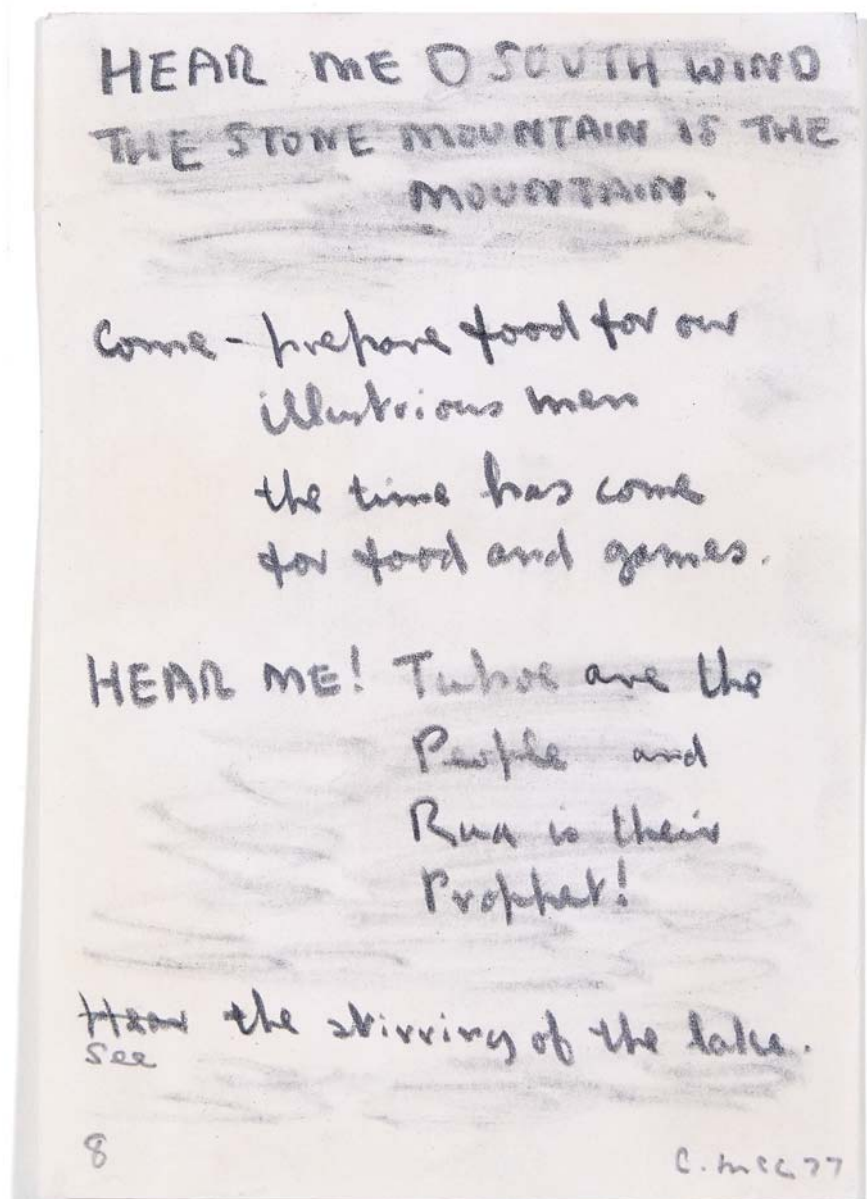 HEAR ME O SOUTH WIND
THE STONE MOUNTAIN IS THE
MOUNTAIN.
Come - prepare food for our
illustrious men
the time has come
for food and games.
HEAR ME! Tuhoe are the
People and
Rua is their
Prophet!
Hear the stirring of the lake.
See
8
C. McC 77